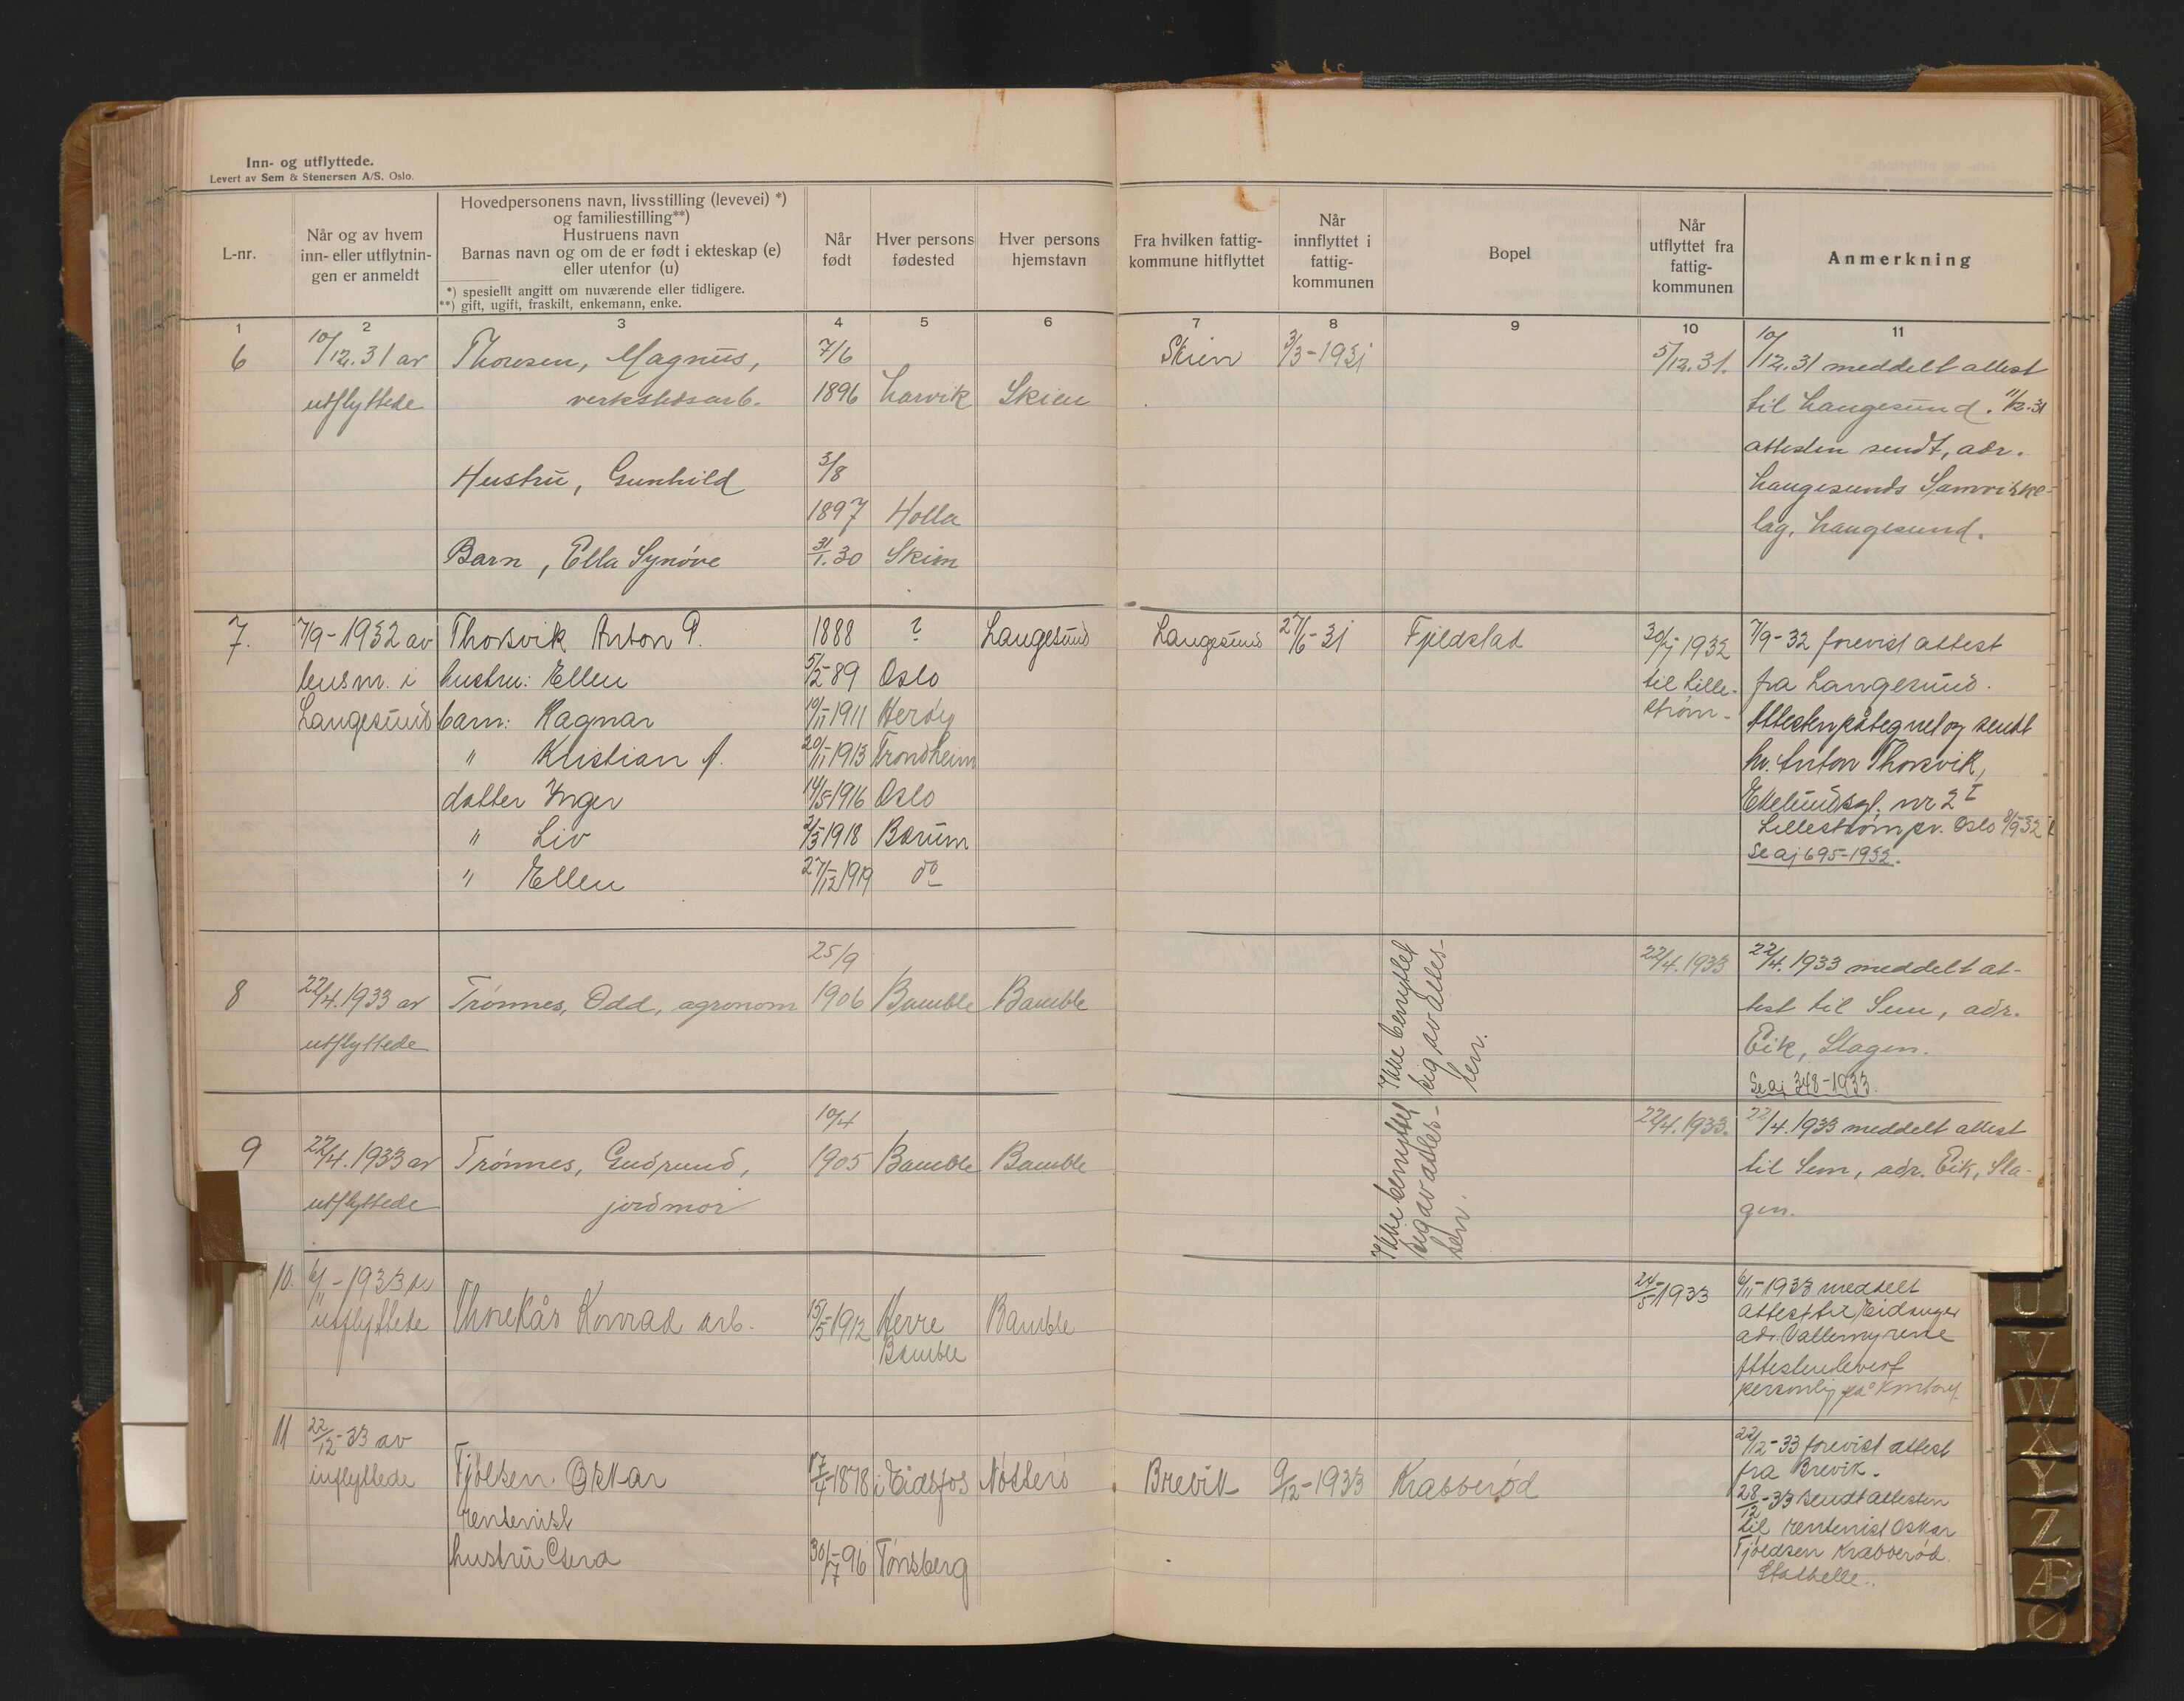 Inn- og utflyttede.
Levert av Sem & Stenersen A/S, Oslo.
L-nr.
Når og av hvem
inn- eller utflytnin-
gen er anmeldt
Hovedpersonens navn, livsstilling (levevei) *)
og familiestilling**)
Hustruens navn
Barnas navn og om de er født i ekteskap (e)
eller utenfor (u)
*) spesielt angitt om nuværende eller tidligere.
**) gift, ugift, fraskilt, enkemann, enke.
Når
født
Hver persons
fødested
Hver persons
hjemstavn
Fra hvilken fattig-
kommune hitflyttet
Når
innflyttet i
fattig-
kommunen
Bopel
Når
utflyttet fra
fattig-
kommunen
Anmerkning
1 2 3 4 5 6 7 8 9 10 11
6 10/12.31 av Thorsen, Magnus, 7/6 Skien 3/3-1931 5/12.31. 10/12.31 meddelt attest
utflyttede verkstedsarb. 1896 Larvik Skien til Langesund. 11/12-31
attesten sendt, adr.
Hustru, Gunhild 3/8 Langesunds Samvirke-
1897 Holla lag, Langesund.
Barn, Ella Synøve 31/1.30 Skien
7. 7/9-1932 av Thorsvik Anton P. 1888 ? Langesund Langesund 27/6-31 Fjeldstad 30/ 1932 7/9-32 forevist attest
lensm. i hustru: Ellen 5/2 89 Oslo til Lille- fra Langesund.
Langesund barn: Ragnar 10/11 1911 Herøy strøm- Attesten påtegnet og sendt
" Kristian A. 20/11-1913 Trondheim hr. Anton Thorsvik,
datter Inger 14/5-1916 Oslo nr 2 I
" Liv 2/3 1918 Bærum Lillestrøm pr. Oslo 8/9-32
" Ellen 27/12 1919 do Se aj 695-1932.
25/9 22/4.1933 22/4.1933 meddelt at-
8 22/4.1933 av Trønnes, Odd, agronom 1906 Bamble Bamble test til Sem, adr.
utflyttede Eik, Slagen.
Se aj 348-1933.
Ikke benyttet
sig av attes-
ten.
10/4 22/4.1933. 22/4.1933 meddelt attest
9 22/4.1933 av Trønnes, Gudrund, 1905 Bamble Bamble til Sem, adr. Eik, Sla-
utflyttede jordmor gen.
Ikke benyttet
sig av attes-
ten.
10. 6/11-1933 av 24/5-1933 6/11-1933 meddelt
utflyttede Thorekås Konrad arb. 15/5-1912 Herre Bamble attest til Eidanger
Bamble adr Vallermyrene
Attesten levert
personlig på Kontoret
11 22/12-33 av 22/12-33 forevist attest
innflyttede Tjølsen Oskar 17/4-1878 i Eidsfos Nøtterø Brevik 9/12-1933 Krabberød fra Brevik.
rentenist 28/12-33 sendt attesten
til rentenist Oskar
hustru 30/7-96 Tønsberg Tjøldsen Krabberød
Stathelle.
U
V
W
X
Y
Z
Æ
Ø